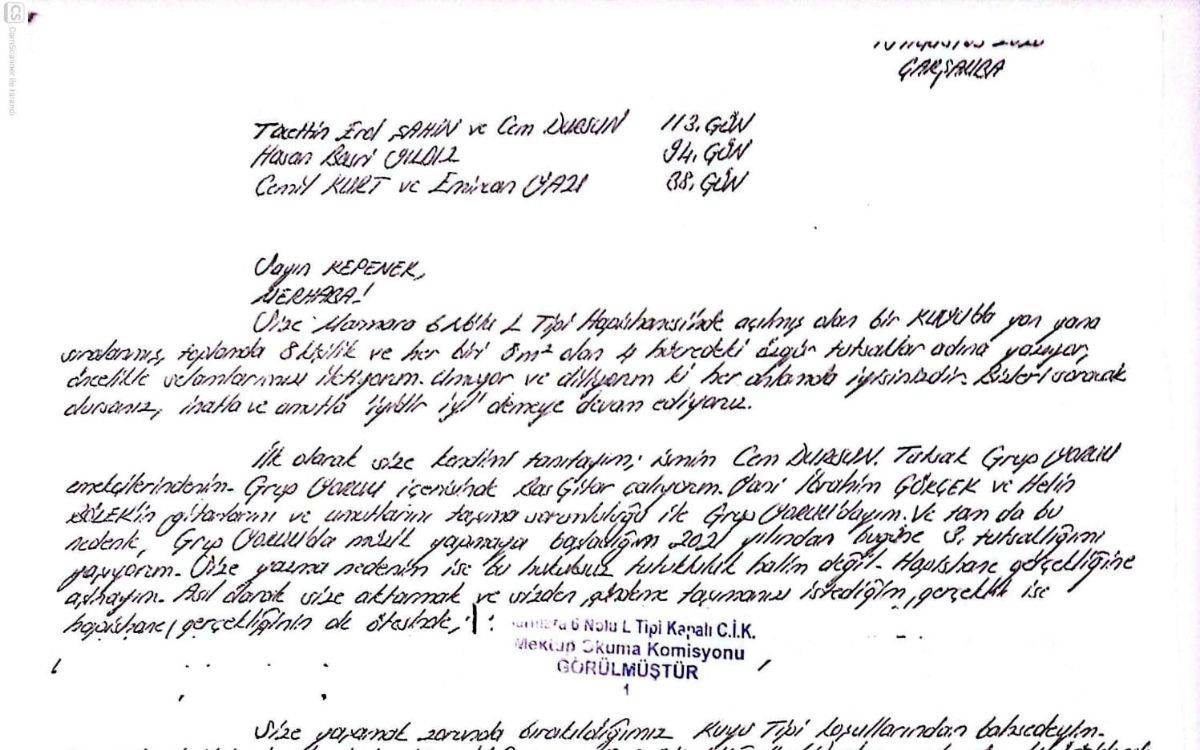 CS CamScanner ile tarandı
ÇARŞAMBA
Tacettin Erol ŞAHİN ve Cem DURSUN 113. GÜN
Hasan Basri YILDIZ 94. GÜN
Cemil KURT ve Emircan YAZI 88. GÜN
Sayın KEPENEK,
MERHABA!
Size Marmara 6 Nolu L Tipi Hapishanesinde açılmış olan bir KUYU'da yan yana
sıralanmış, toplamda 8 kişilik ve her biri 8m² olan 4 hücredeki özgür tutsaklar adına yazıyor,
öncelikle selamlarımızı iletiyorum. Umuyor ve diliyorum ki her anlamda iyisinizdir. Bizleri soracak
olursanız, inatla ve umutla "iyidir iyi" demeye devam ediyoruz.
İlk olarak size kendimi tanıtayım; ismim Cem DURSUN. Tutsak Grup YORUM
emekçilerindenim. Grup YORUM içerisinde Bas Gitar çalıyorum. Yani İbrahim GÖKÇEK ve Helin
BÖLEK'in gitarlarını ve umutlarını taşıma sorumluluğu ile Grup YORUM'dayım. Ve tam da bu
nedenle, Grup YORUM'da müzik yapmaya başladığım 2021 yılından bugüne 3. tutsaklığımı
yaşıyorum. Size yazma nedenim ise bu hukuksuz tutukluluk halim değil. Hapishane gerçekliğine
aşinayım. Asıl olarak size aktarmak ve sizden gündeme taşımanızı istediğim, gerçeklik ise
hapishane gerçekliğinin de ötesinde,
Marmara 6 Nolu L Tipi Kapalı C.İ.K.
Mektup Okuma Komisyonu
GÖRÜLMÜŞTÜR
1
Size yaşamak zorunda bırakıldığımız Kuyu Tipi koşullarından bahsedeyim.